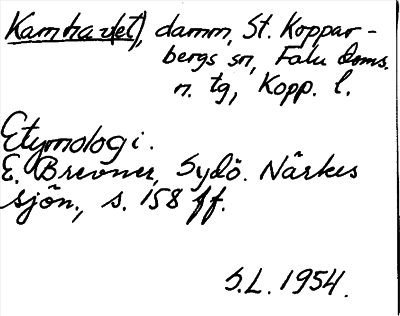 Kamhavet), damm, St. Koppar-
bergs sn, Falu Doms.
n. tg, Kopp. l.
Etymologi.
E. Brevner, Sydö. Närkes
sjön., s. 158 ff.
S.L. 1954.